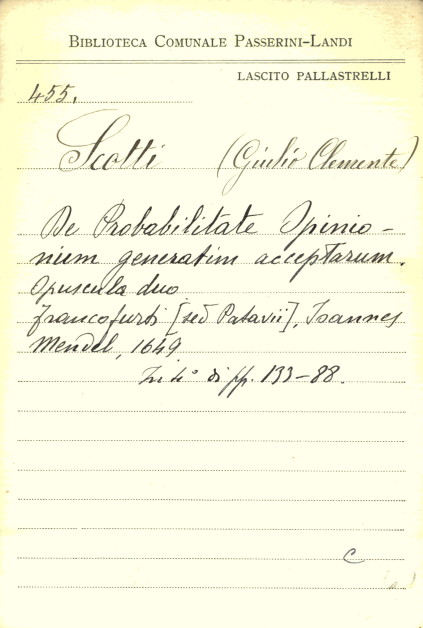 BIBLIOTECA COMUNALE PASSERINI-LANDI
LASCITO PALLASTRELLI
455.
Scotti (Giulio Clemente)
De Probabilitate Opinio-
nium generatim acceptarum.
Opuscula duo
Francofurti [sed Patavii], Ioannes
Mendel, 1649.
In 4° di pp. 133-88.
C